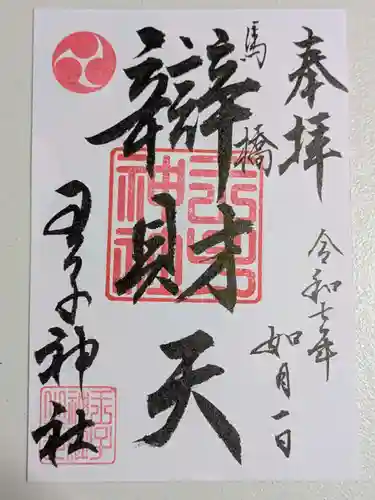 奉拝
令和七年
如月一日
馬橋
辯財天
王子神社